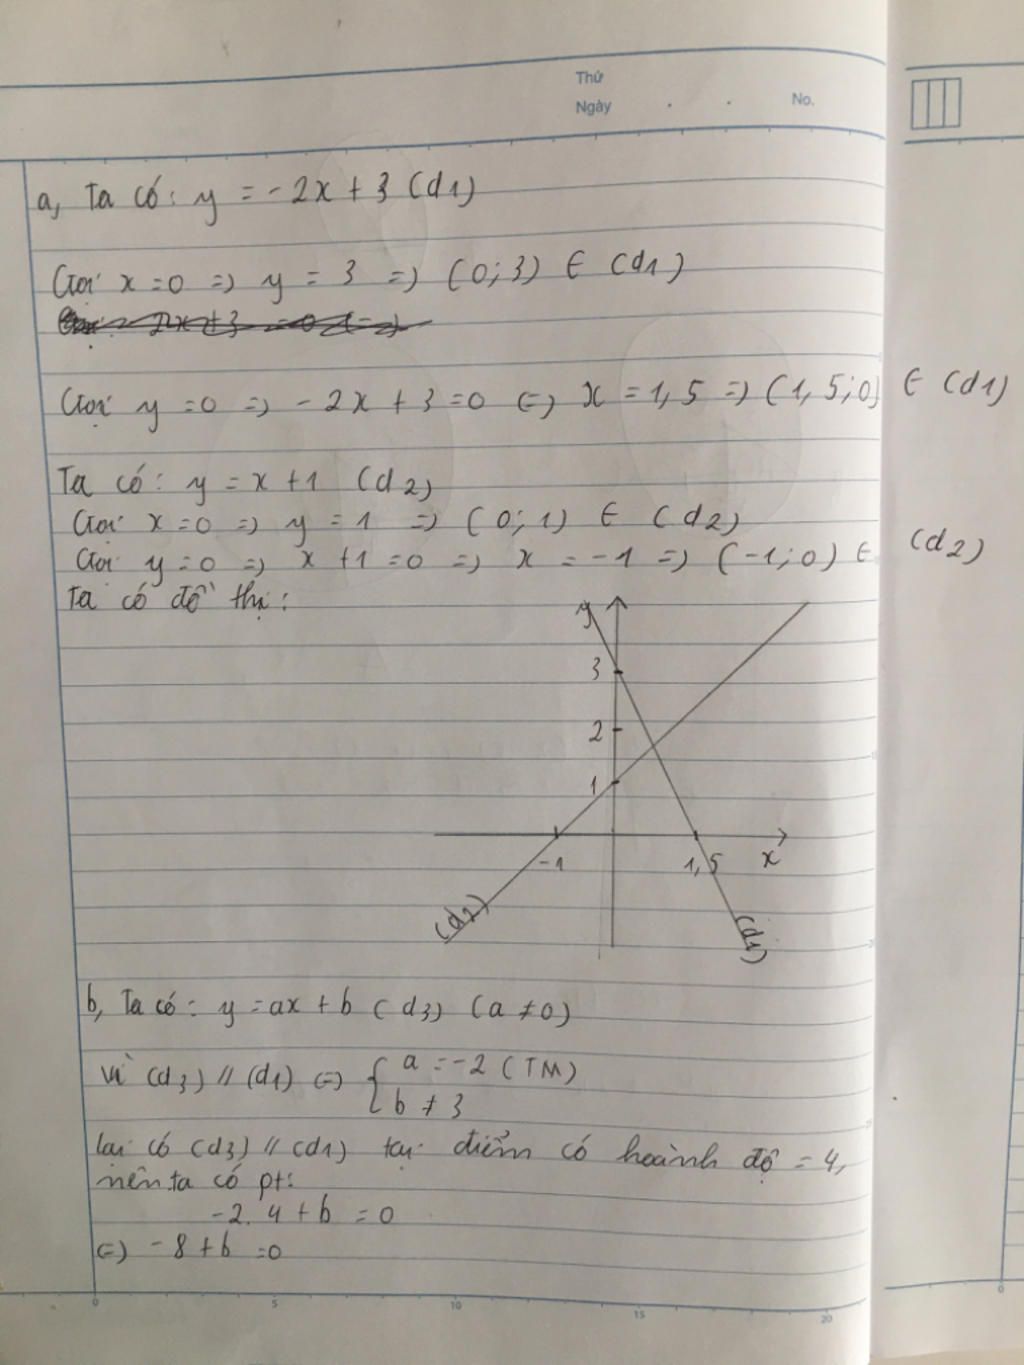 Thứ
Ngày . . No.
a, Ta có: y = -2x + 3 (d1)
Gọi x = 0 => y = 3 => (0; 3) ∈ (d1)
Gọi y = 0 => -2x + 3 = 0 <=> x = 1,5 => (1,5; 0) ∈ (d1)
Ta có: y = x + 1 (d2)
Gọi x = 0 => y = 1 => (0; 1) ∈ (d2)
Gọi y = 0 => x + 1 = 0 => x = -1 => (-1; 0) ∈ (d2)
Ta có đồ thị:
y
3
2
1
-1 1,5 x
(d2) (d1)
b, Ta có: y = ax + b (d3) (a ≠ 0)
Vì (d3) // (d1) <=> { a = -2 (TM)
b ≠ 3
lại có (d3) // (d1) tại điểm có hoành độ = 4,
nên ta có pt:
-2.4 + b = 0
<=> -8 + b = 0
0 5 10 15 20
0